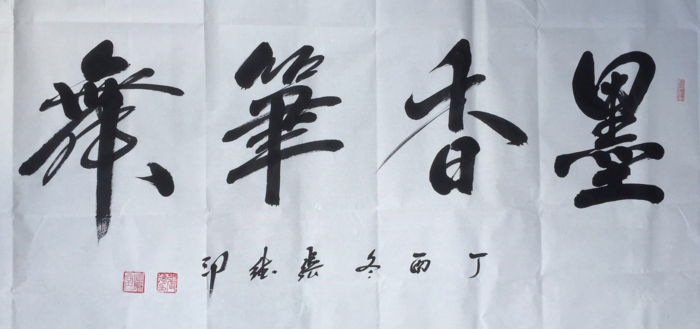 墨香筆舞
丁酉冬張繼印